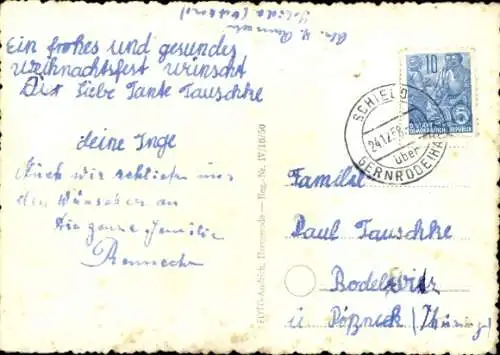 Ein frohes und gesundes
Weihnachtsfest wünscht
Dir liebe Tante Tauschke
deine Inge
Auch wir schließen uns
den Wünschen an
Die ganze Familie
Rennecke
Reg.-Nr. IV/18/50
10
DEMOKRATISCHE REPUBLIK
SCHIELO
24.12.58
über
GERNRODE(HARZ)
Familie
Paul Tauschke
Bodelwitz
ü. Pößneck / Thüring.